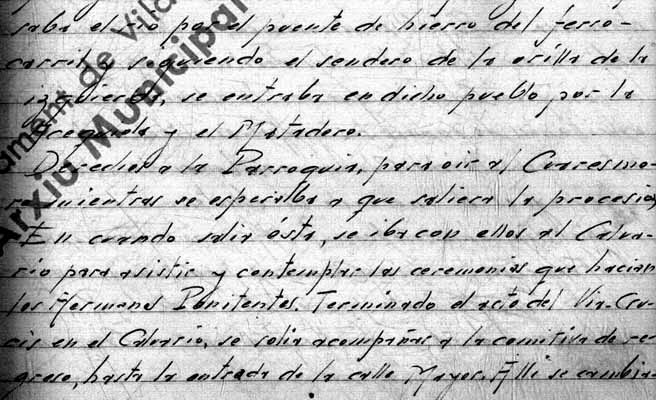 saba el río por el puente de hierro del ferro-
carril y siguiendo el sendero de la orilla de la
izquierda, se entraba en dicho pueblo por la
y el Matadero.
Derechos a la Parroquia, para oir al Cuaresme-
ro mientras se esperaba a que saliera la procesión,
En cuando salia ésta, se iba con ellos al Calva-
rio para asistir y contemplar las ceremonias que hacian
los Hermanos Penitentes. Terminado el acto del Via-Cru-
cis en el Calvario, se solia acompañar a la comitiva de re-
greso, hasta la entrada de la calle Mayor. Alli se cambia-
Arxiu Municipal
de Vila